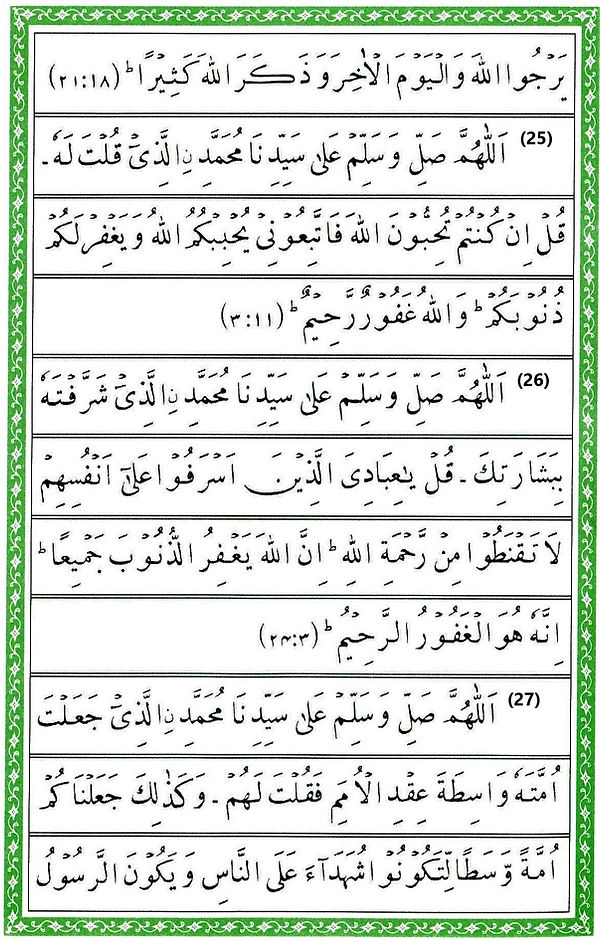 يَرْجُوا اللهَ وَالْيَوْمَ الْاٰخِرَ وَذَكَرَ اللهَ كَثِيْرًا ؕ (۲۱:۱۸)
(25) اَللّٰهُمَّ صَلِّ وَسَلِّمْ عَلٰى سَيِّدِنَا مُحَمَّدِ نِ الَّذِىْ قُلْتَ لَهٗ ۔
قُلْ اِنْ كُنْتُمْ تُحِبُّوْنَ اللهَ فَاتَّبِعُوْنِىْ يُحْبِبْكُمُ اللهُ وَيَغْفِرْلَكُمْ
ذُنُوْبَكُمْ ؕ وَاللهُ غَفُوْرٌ رَّحِيْمٌ ؕ (۳:۱۱)
(26) اَللّٰهُمَّ صَلِّ وَسَلِّمْ عَلٰى سَيِّدِنَا مُحَمَّدِ نِ الَّذِىْ شَرَّفْتَهٗ
بِبَشَارَتِكَ ۔ قُلْ يٰعِبَادِىَ الَّذِيْنَ اَسْرَفُوْا عَلٰٓى اَنْفُسِهِمْ
لَا تَقْنَطُوْا مِنْ رَّحْمَةِ اللهِ ؕ اِنَّ اللهَ يَغْفِرُ الذُّنُوْبَ جَمِيْعًا ؕ
اِنَّهٗ هُوَ الْغَفُوْرُ الرَّحِيْمُ ؕ (۲۴:۳)
(27) اَللّٰهُمَّ صَلِّ وَسَلِّمْ عَلٰى سَيِّدِنَا مُحَمَّدِ نِ الَّذِىْ جَعَلْتَ
اُمَّتَهٗ وَاسِطَةَ عِقْدِ الْاُمَمِ فَقُلْتَ لَهُمْ ۔ وَكَذٰلِكَ جَعَلْنَاكُمْ
اُمَّةً وَّسَطًا لِّتَكُوْنُوْا شُهَدَآءَ عَلَى النَّاسِ وَيَكُوْنَ الرَّسُوْلُ